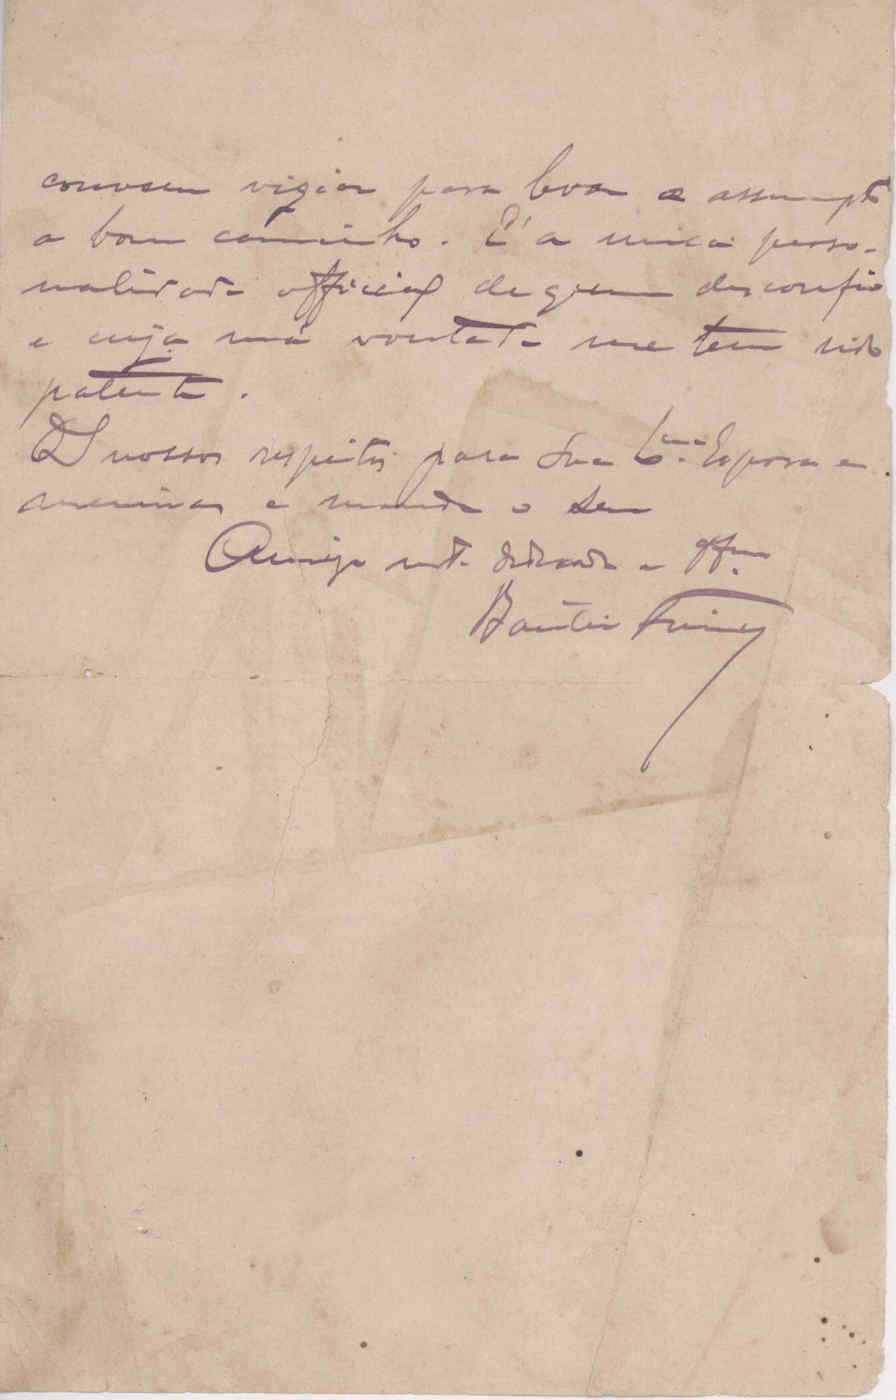 convem vigiar para levar o assumpto
a bom caminho. É a unica perso-
nalidade official de quem desconfio
e cuja má vontade me tem sido
patente.
Os nossos respeitos para Sua Exma. Esposa e
meninas e mande o seu
Amigo mt. dedicado e